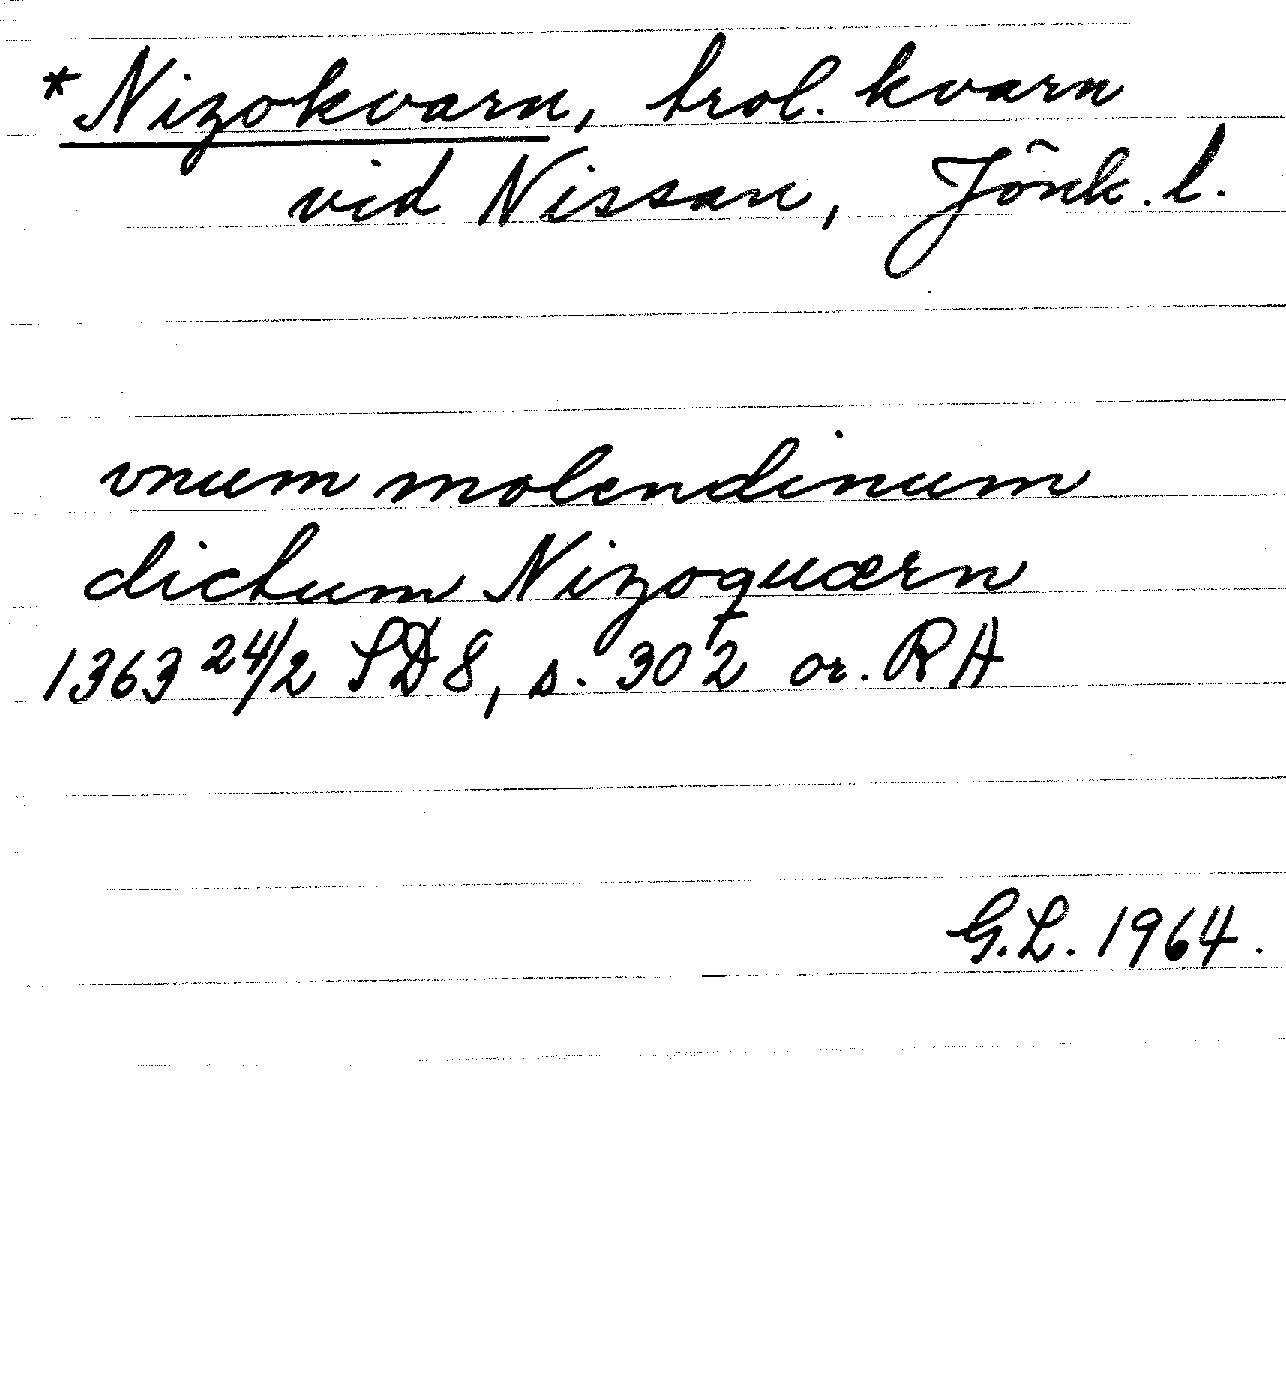 *Nizokvarn, trol. kvarn
vid Nissan, Jönk. l.
vnum molendinum
dictum Nizoquærn
1363 24/2 SD8, s. 302 or. RA
G.L. 1964.